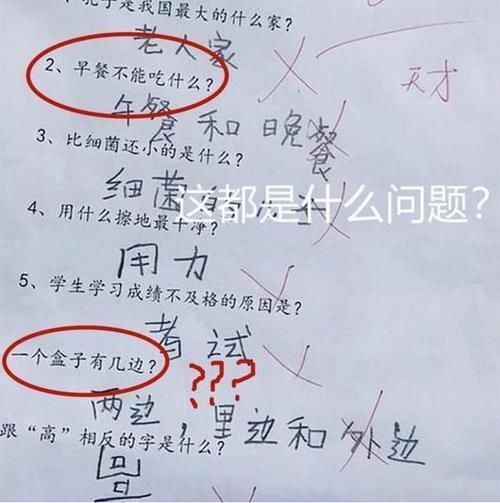 孔子是我国最大的什么家?
老人家
天才
2、早餐不能吃什么?
午餐和晚餐
3、比细菌还小的是什么?
细菌的儿子
这都是什么问题?
4、用什么擦地最干净?
用力
5、学生学习成绩不及格的原因是?
考试
一个盒子有几边?
???
两边,里边和外边
跟“高”相反的字是什么?